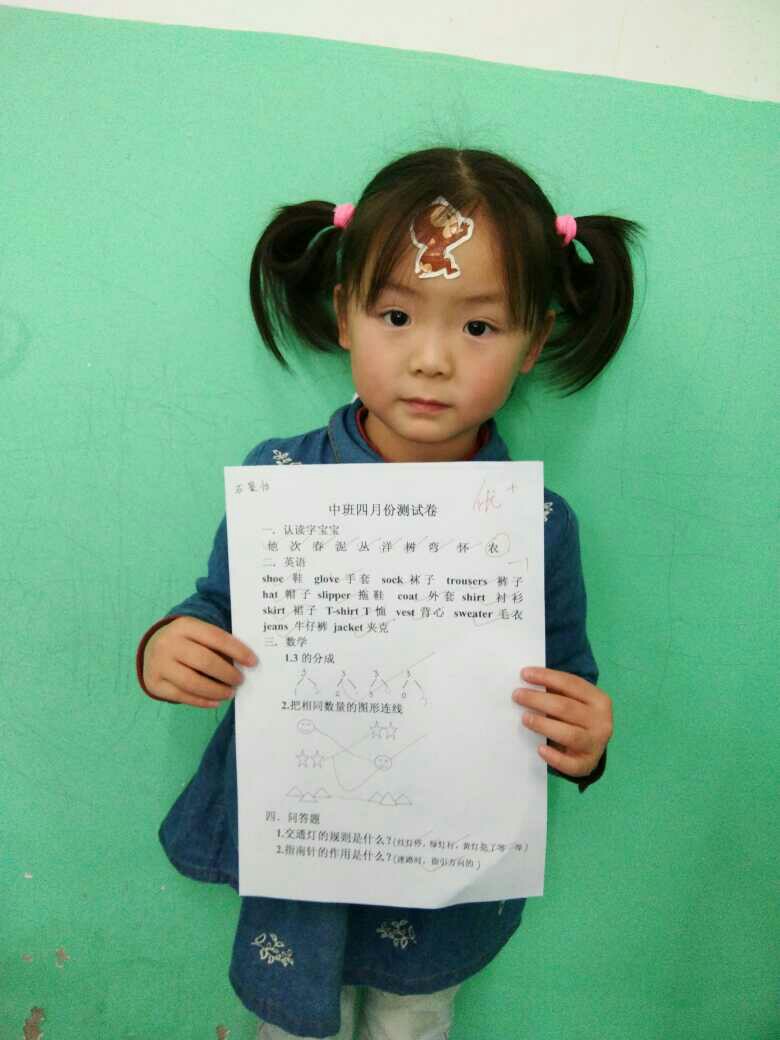 优+
中班四月份测试卷
一. 认读字宝宝
他 次 春 泥 丛 洋 树 弯 怀 农
-1
二. 英语
shoe 鞋 glove 手套 sock 袜子 trousers 裤子
hat 帽子 slipper 拖鞋 coat 外套 shirt 衬衫
skirt 裙子 T-shirt T 恤 vest 背心 sweater 毛衣
jeans 牛仔裤 jacket 夹克
三. 数学
1.3 的分成
3 3 3 3
2.把相同数量的图形连线
四. 问答题
1.交通灯的规则是什么?(红灯停，绿灯行，黄灯亮了等一等)
2.指南针的作用是什么?(迷路时，指引方向的)